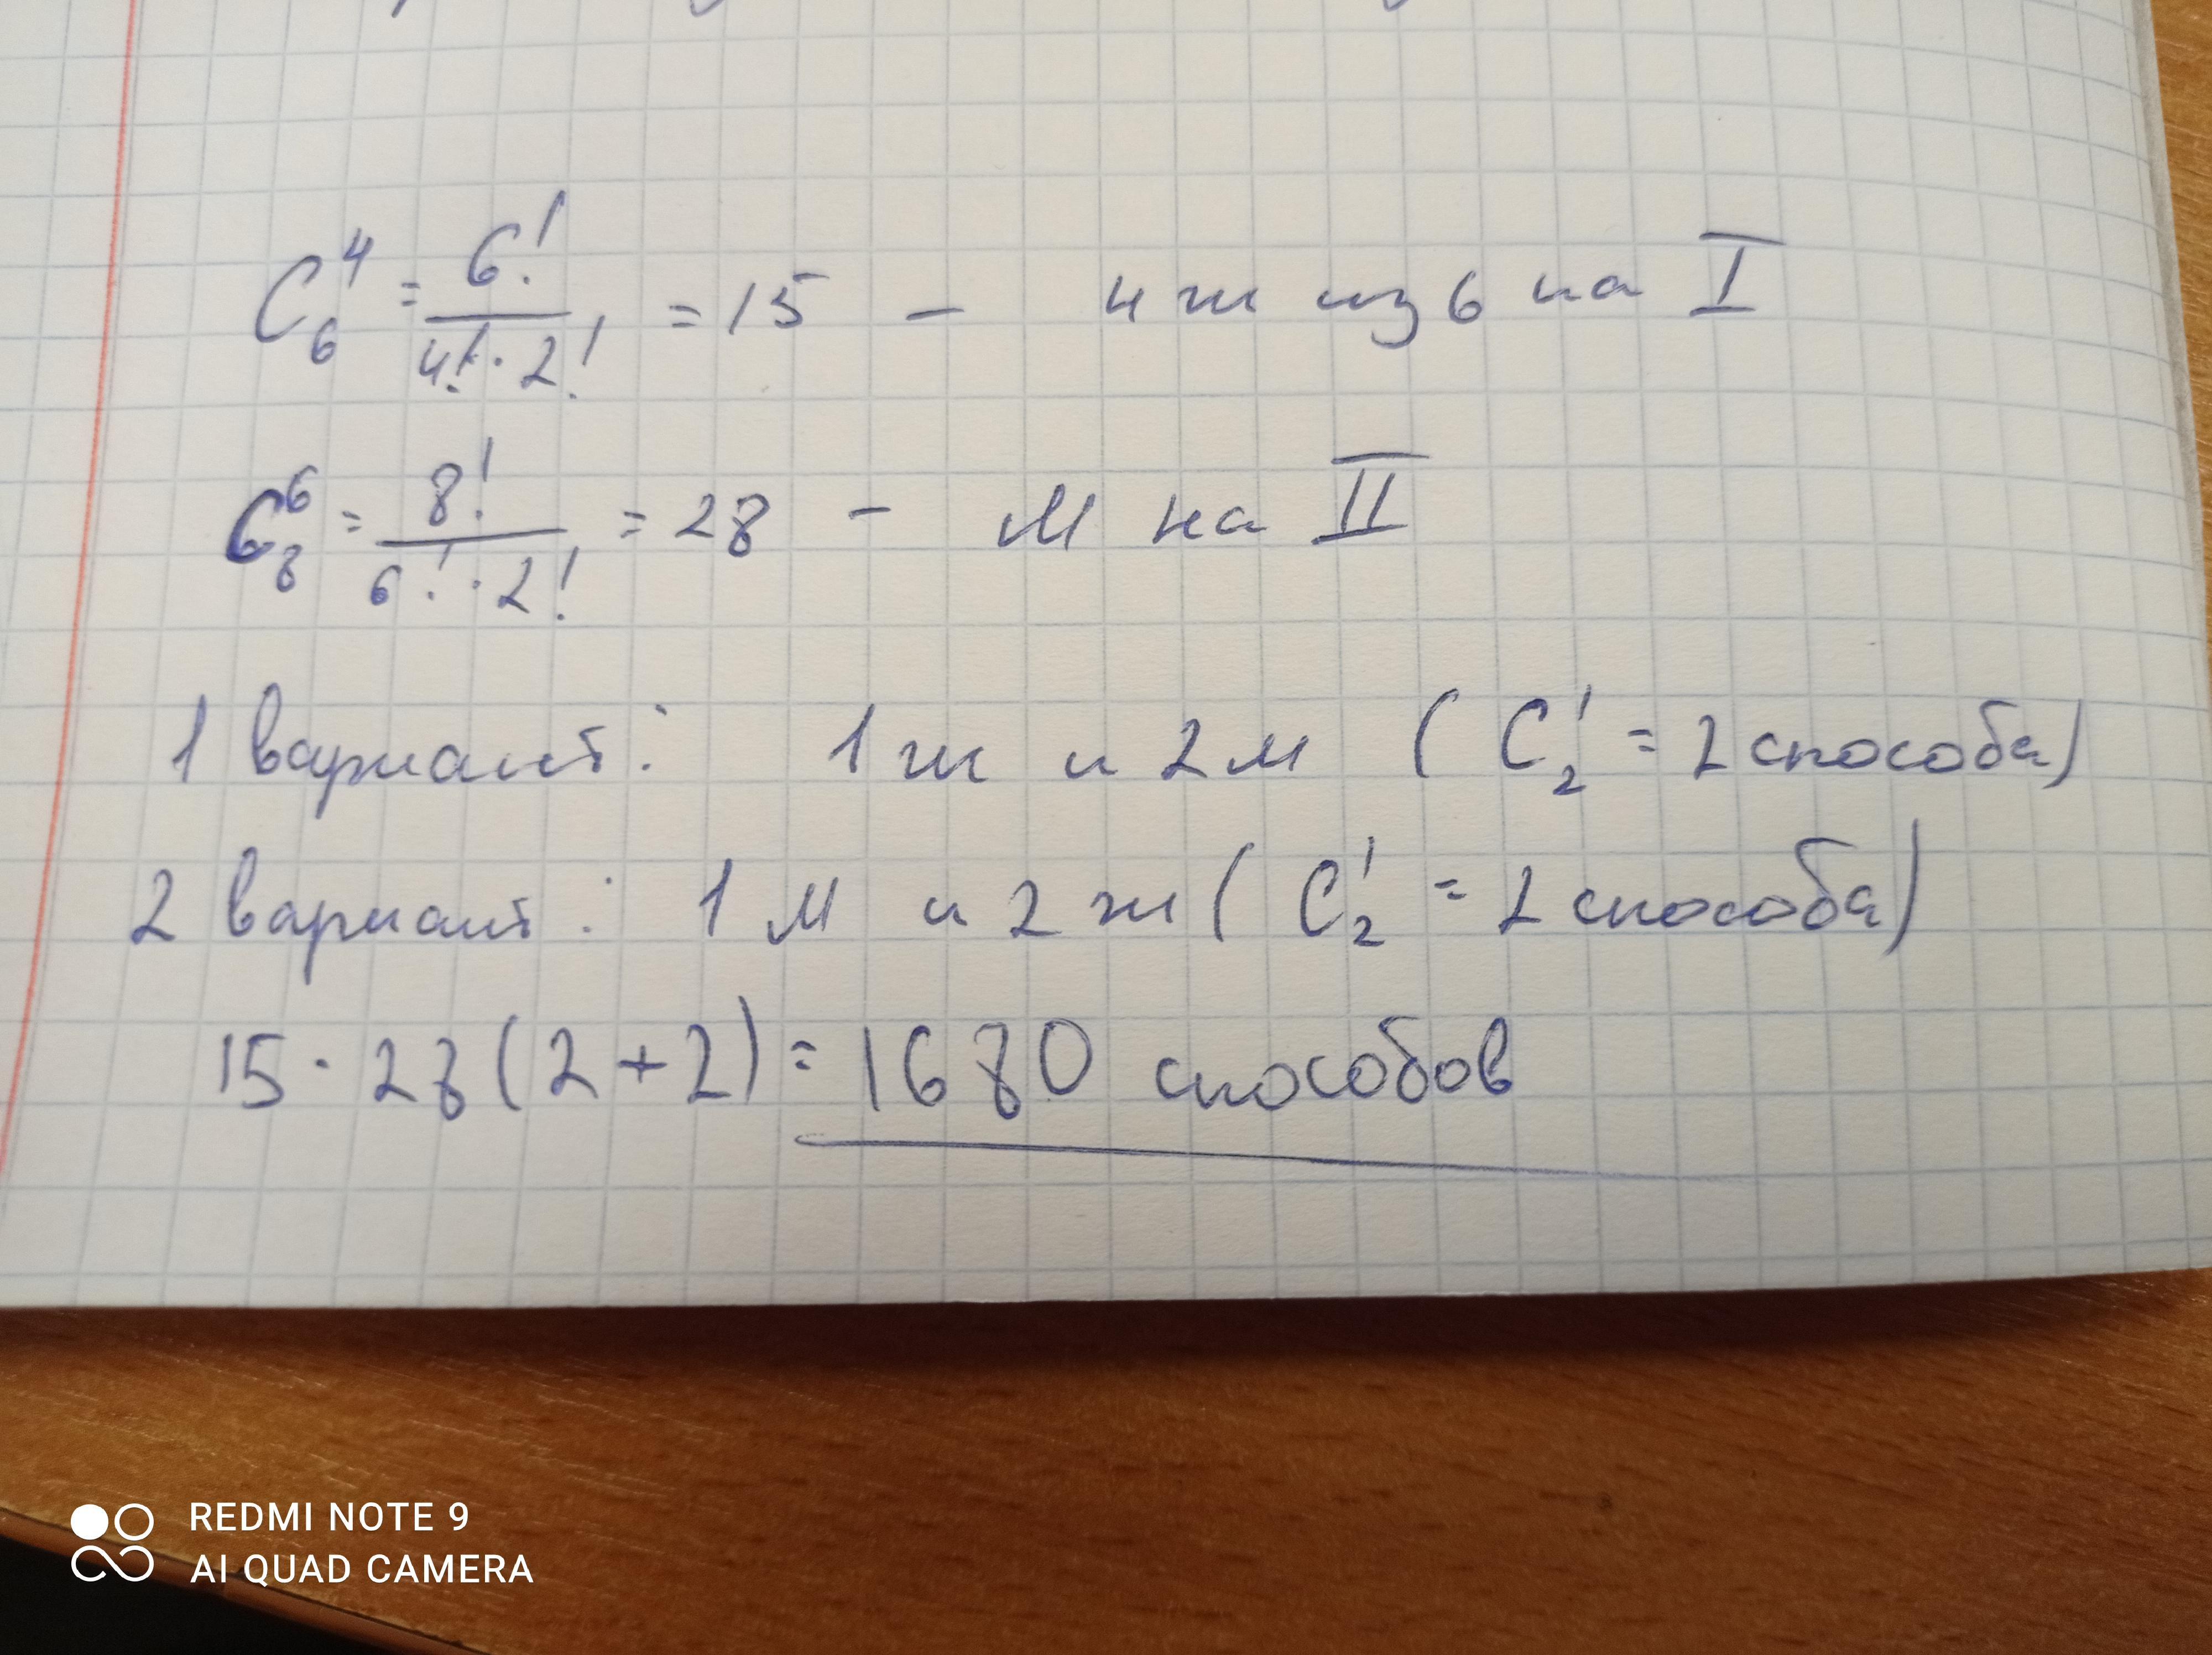 C₆⁴ = 6! / (4! · 2!) = 15 – 4 ж из 6 на I
C₈⁶ = 8! / (6! · 2!) = 28 – М на II
1 вариант: 1 ж и 2 м ( C₂¹ = 2 способа)
2 вариант: 1 м и 2 ж ( C₂¹ = 2 способа)
15 · 28 (2 + 2) = 1680 способов
REDMI NOTE 9
AI QUAD CAMERA